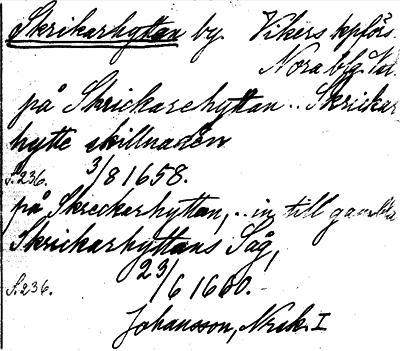 Skrikarhyttan by. Vikers kpförs.
Nora bfg. Vsl.
på Skrickarehyttan .. Skrickar
hytte skillnaden
S. 236. 3/8 1658.
på Skreckarhyttan, .. in till gamble
Skrickarhyttans Såg,
S. 236. 23/6 1660.
Johansson, Nrik. I